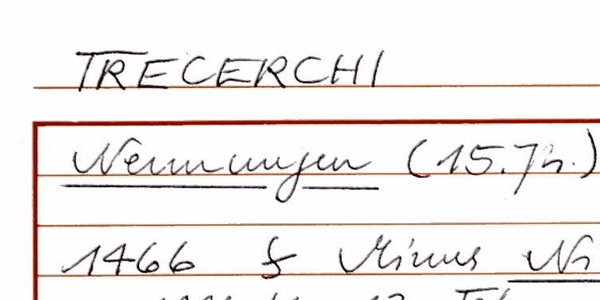 TRECERCHI
Nennungen (15.Jh.)
1466 f Minus Ni